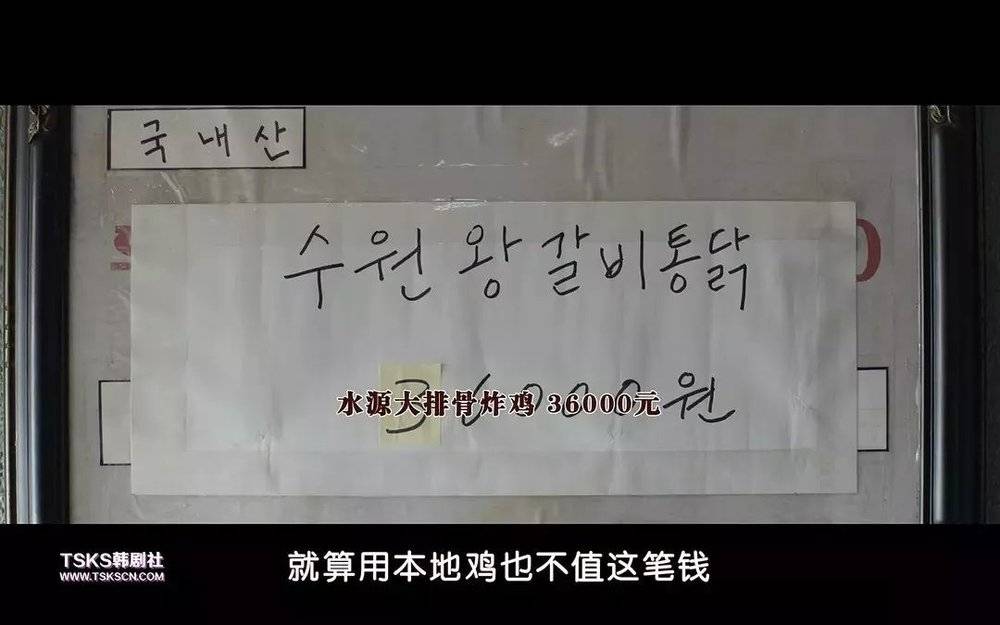 국내산
수원 왕갈비통닭
36000원
水源大排骨炸鸡 36000元
TSKS韩剧社
WWW.TSKSCN.COM
就算用本地鸡也不值这笔钱